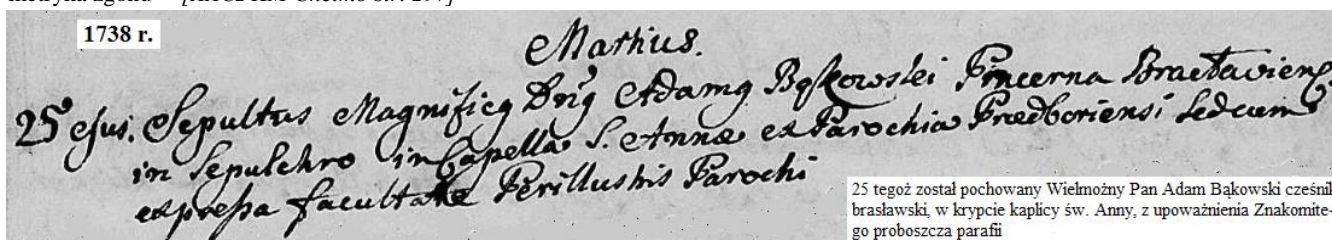 metryka zgonu
1738 r.
Martius.
25 ejus. Sepultus Magnificq Dnq Adamq Bąkowski Pincerna Bracłaviens
in Sepulchro in Capella S. Annæ ex Parochia Prædboriensi sed cum
expressa facultate Perillustris Parochi
25 tegoż został pochowany Wielmożny Pan Adam Bąkowski cześnik
brasławski, w krypcie kaplicy św. Anny, z upoważnienia Znakomite-
go proboszcza parafii